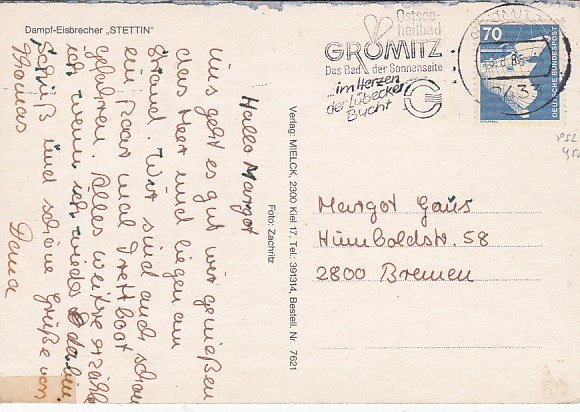 Dampf-Eisbrecher „STETTIN"
Hallo Margot
uns geht es gut wir genießen
das Meer und liegen am
Strand. Wir sind auch schon
ein paar mal Trettboot
gefahren. Alles weitre erzähle
ich wenn ich wieder da bin.
Tschüß und schöne Grüße von
Thomas Dana
Verlag: MIELCK, 2300 Kiel 17, Tel: 391314, Bestell. Nr. 7621
Foto: Zachritz
Ostsee-
heilbad
GRÖMITZ
Das Bad der Sonnenseite
...im Herzen
der Lübecker
Bucht
GRÖMITZ
2433
70
DEUTSCHE BUNDESPOST
Margot Gaus
Humboldstr. 58
2800 Bremen